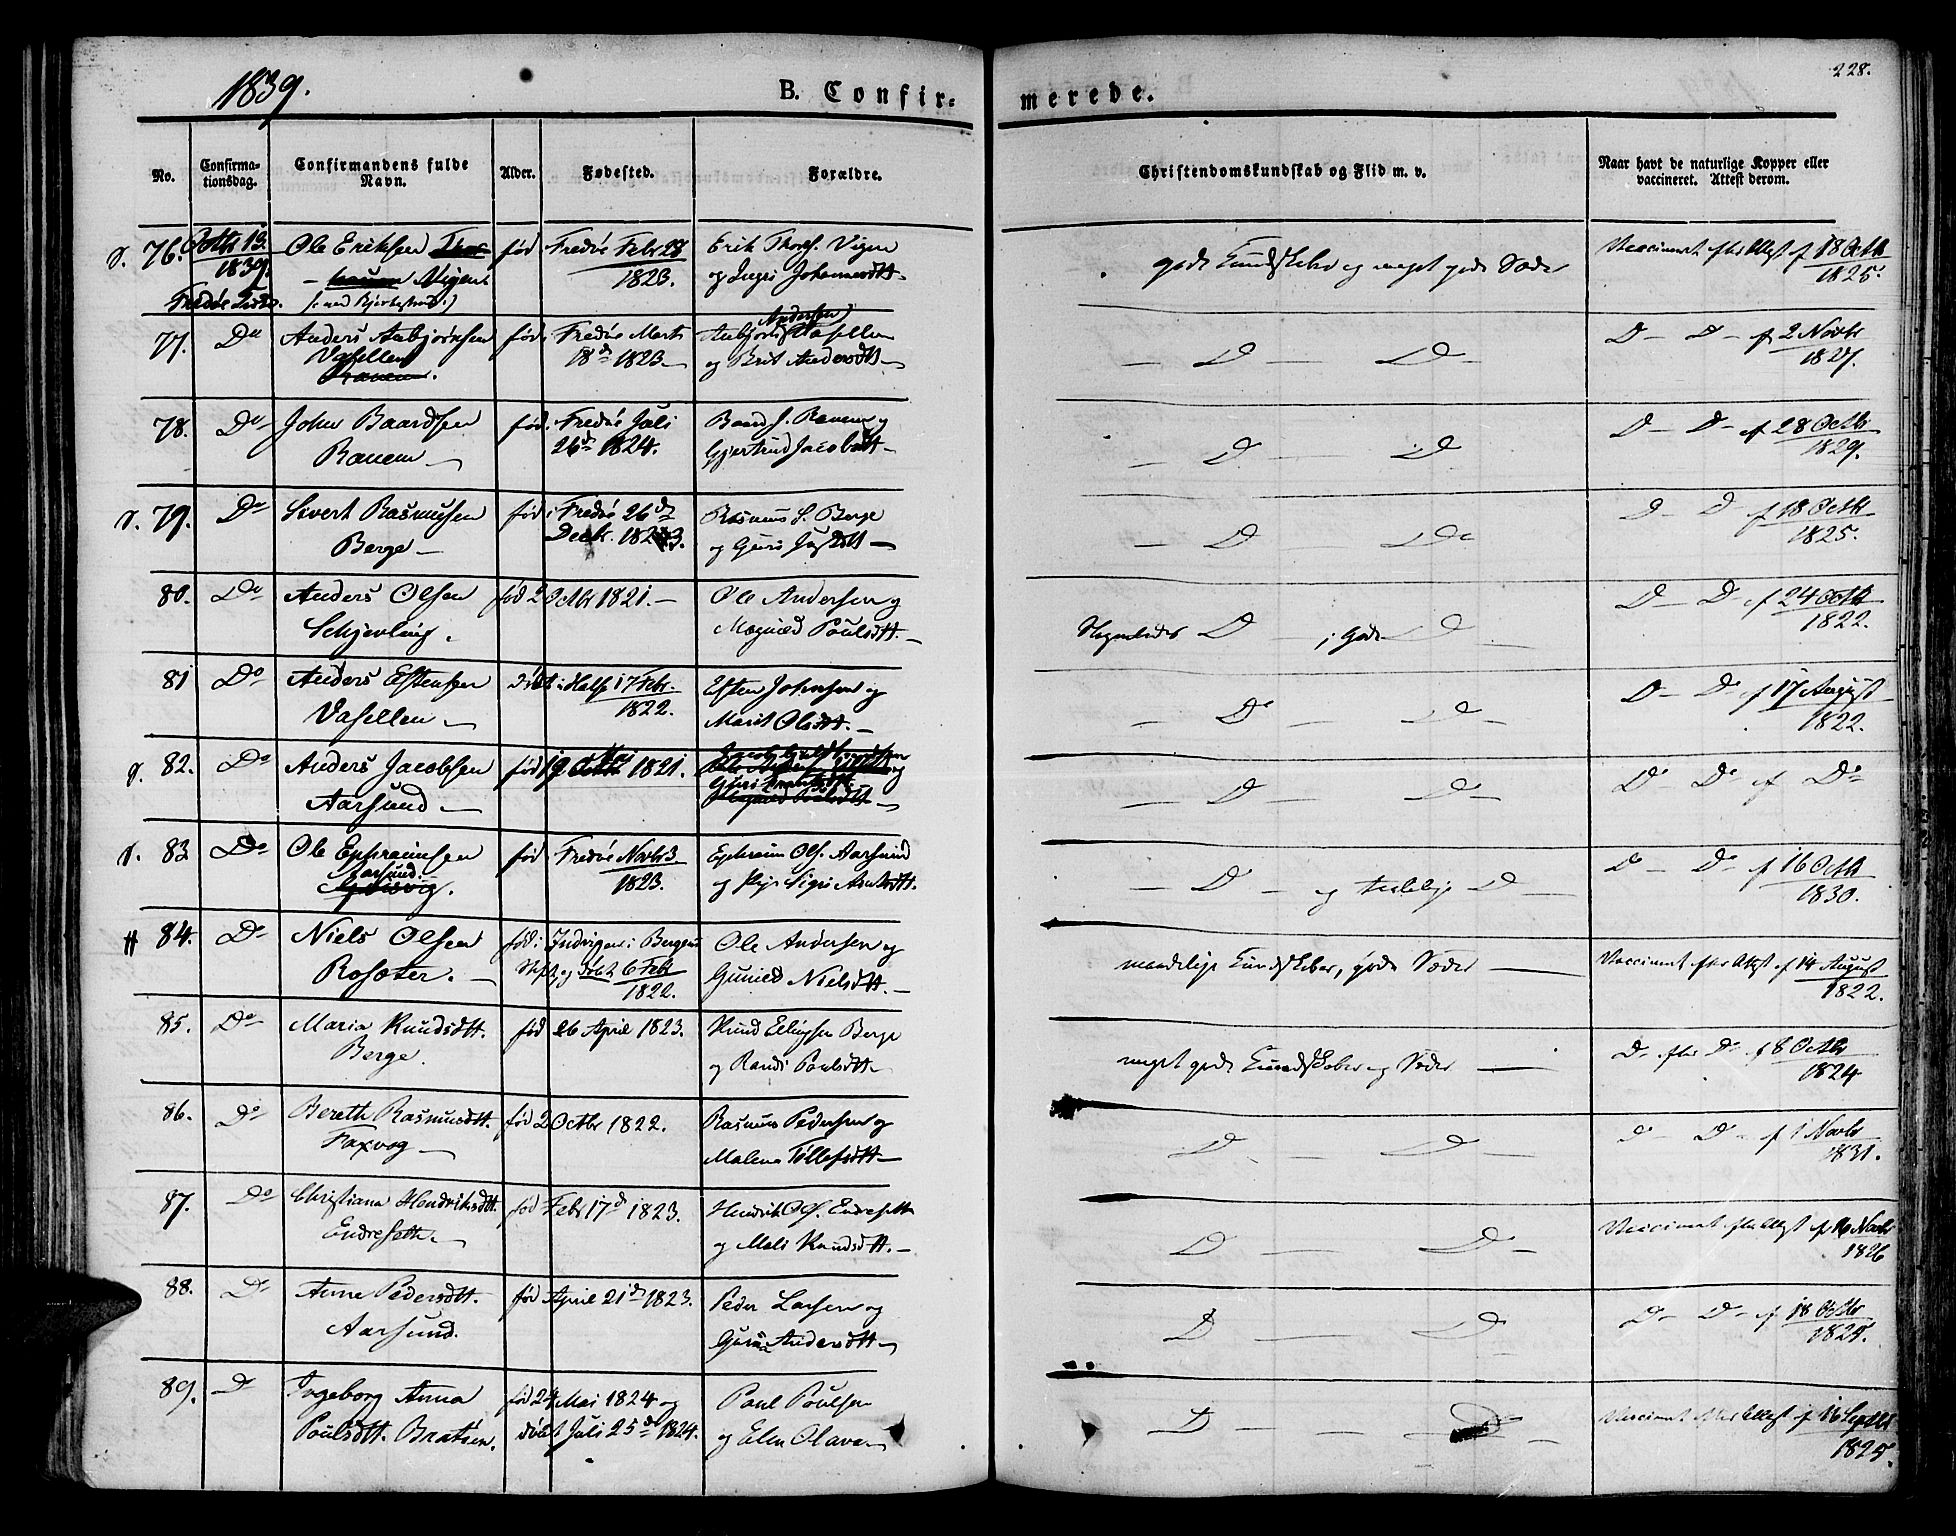 1839.
B. Confir-
merede.
228.
No.
Confirma-
tionsdag.
Confirmandens fulde
Navn.
Alder.
Fødested.
Forældre.
Christendomskundskab og Flid m. v.
Naar havt de naturlige Kopper eller
vaccineret. Attest derom.
76. Octbr 13 1839. Ole Eriksen Vigen født Fredøe Febr 27 1823. Erik Vigen og Johannesdtt.
gode Kundskaber og meget gode Sæder
Vaccineret efter Attest af 18 Octbr 1825.
77. Do Anders Anbjørnsen Vasellen Ranem. født Fredøe Marts 18d 1823. Andersen Vasellen og Brit Andersdtt.
D D
D D af 2 Novbr 1827.
78. Do John Baardsen Ranem født Fredøe Juli 26d 1824. Baard J. Ranem og Gjertrud Jacobsdtt.
D D
D D af 28 Octbr 1829.
79. Do Sivert Rasmusen Berge født Fredøe 26d Decbr. 1823. Rasmus S. Berge og Guri
D Do
D D af 18 Octbr 1825.
80. Do Anders Olsen født 2 Octbr 1821. Ole Andersen og Magnild Poulsdtt.
D gode D
D D af 24 Octbr 1822.
81 Do Anders Estensen Vasellen 17 Febr. 1822. Esten Johnsen og Marit Olsdtt.
Do D
D Do af 17 August 1822.
82. Do Anders Jacobsen Aarsund født 19 1821.
D D
Do Do af Do
83 Do Ole Ephraimsen Aarsund født Fredøe Novbr 3 1823. Ephraim Ols. Aarsund og Sigri
D og D
D Do af 16 Octbr 1830.
84. Do Niels Olsen født i Bergens Stift, og døbt 6 Febr 1822. Ole Andersen og Gunild Nielsdtt.
maadelige Kundskaber, gode Sæder
Vaccineret efter Attest af 14 August 1822.
85. Do Maria Knudsdtt. Berge. født 26 April 1823. Knud Ellingsen Berge og Randi Poulsdtt.
meget gode Kundskaber og Sæder
D efter D af 8 Octbr 1824
86. Do Bereth Rasmusdtt. Faxvog født 2 Octbr 1822. Rasmus Pedersen og Malena Tollefsdtt.
D D
D D af 1 Novbr 1831.
87. Do Christiana Hendriksdtt. Endreseth. født Febr 17d 1823. Hendrik Ols. Endreseth og Mali Knudsdtt.
D D
Vaccineret efter Attest af 16 Novbr 1826
88. Do Anne Pedersdtt. Aarsund. født April 21d 1823. Peder Larsen og Andersdtt.
D D
D D af 18 Octbr
89. D Ingeborg Anna Poulsdtt. født 24 Mai 1824 og døbt Juli 25d 1824. Poul Poulsen og Elen
D D
Vaccineret efter Attest af 16 Septbr 1825.